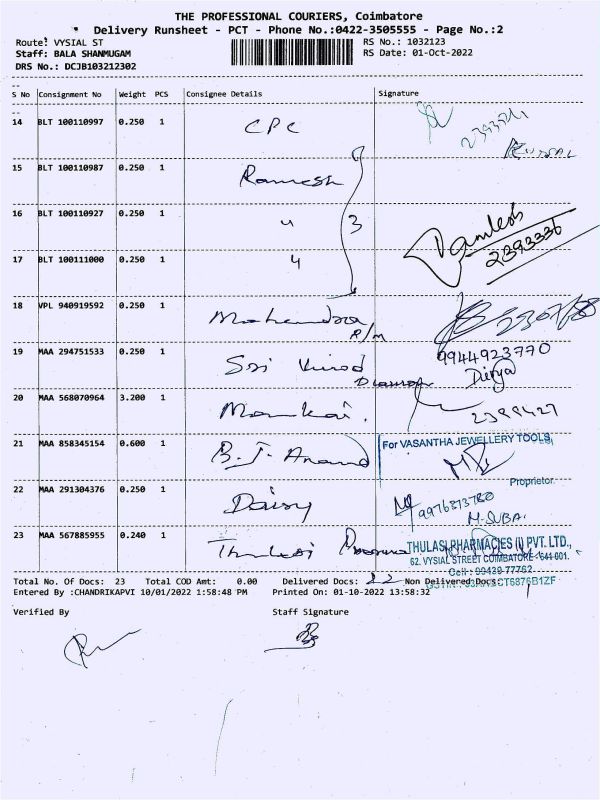 THE PROFESSIONAL COURIERS, Coimbatore
Delivery Runsheet - PCT - Phone No.:0422-3505555 - Page No.:2
Route: VYSIAL ST
RS No.: 1032123
Staff: BALA SHANMUGAM
RS Date: 01-Oct-2022
DRS No.: DCJB103212302
S No Consignment No Weight PCS Consignee Details Signature
14 BLT 100110997 0.250 1 CPC
15 BLT 100110987 0.250 1 Ramesh
16 BLT 100110927 0.250 1 " 3 Ramlesh 2393336
17 BLT 100111000 0.250 1 "
18 VPL 940919592 0.250 1 Mahendra R/M
19 MAA 294751533 0.250 1 Sri Vinod 9944923770 Divya
20 MAA 568070964 3.200 1 2399427
21 MAA 858345154 0.600 1 B. J. Anand For VASANTHA JEWELLERY TOOLS,
Proprietor
22 MAA 291304376 0.250 1 Daisy 9976373780
M.SUBA.
23 MAA 567885955 0.240 1 Thulasi THULASI PHARMACIES (I) PVT. LTD.,
62, VYSIAL STREET COIMBATORE - 641 001.
Cell : 99439 77762
Total No. Of Docs: 23 Total COD Amt: 0.00 Delivered Docs: 22 Non Delivered Docs: 1
Entered By :CHANDRIKAPVI 10/01/2022 1:58:48 PM Printed On: 01-10-2022 13:58:32
Verified By Staff Signature